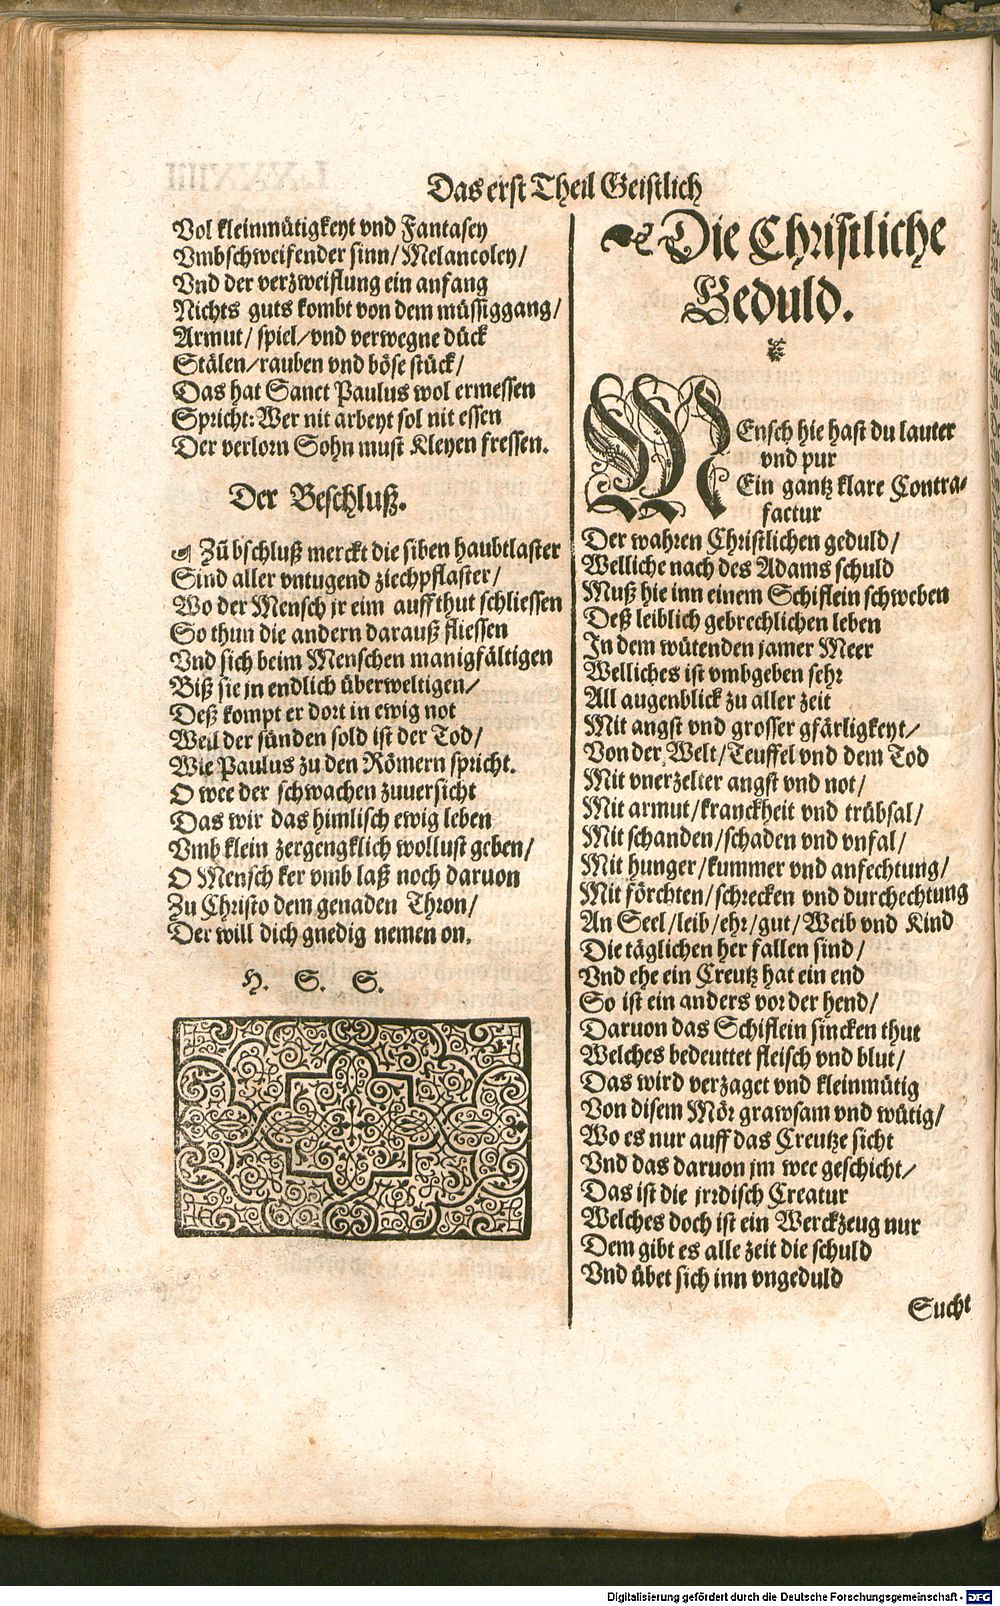 Das erst Theil Geistlich
Vol kleinmütigkeyt vnd Fantasey
Vmbschweifender sinn/Melancoley/
Vnd der verzweiflung ein anfang
Nichts guts kombt von dem müssiggang/
Armut/spiel/vnd verwegne dück
Stälen/rauben vnd böse stück/
Das hat Sanct Paulus wol ermessen
Spricht: Wer nit arbeyt sol nit essen
Der verlorn Sohn must Kleyen fressen.
Der Beschluß.
Zů bschluß merckt die siben haubtlaster
Sind aller vntugend ziechpflaster/
Wo der Mensch jr eim auff thut schliessen
So thun die andern darauß fliessen
Vnd sich beim Menschen manigfältigen
Biß sie jn endlich überweltigen/
Deß kompt er dort in ewig not
Weil der sünden sold ist der Tod/
Wie Paulus zu den Römern spricht.
O wee der schwachen zuuersicht
Das wir das himlisch ewig leben
Vmb klein zergengklich wollust geben/
O Mensch ker vmb laß noch daruon
Zu Christo dem genaden Thron/
Der will dich gnedig nemen on.
H. S. S.
Die Christliche
Geduld.
MEnsch hie hast du lauter
vnd pur
Ein gantz klare Contra-
factur
Der wahren Christlichen geduld/
Welliche nach des Adams schuld
Muß hie inn einem Schiflein schweben
Deß leiblich gebrechlichen leben
In dem wütenden jamer Meer
Welliches ist vmbgeben sehr
All augenblick zu aller zeit
Mit angst vnd grosser gfärligkeyt/
Von der Welt/Teuffel vnd dem Tod
Mit vnerzelter angst vnd not/
Mit armut/kranckheit vnd trübsal/
Mit schanden/schaden vnd vnfal/
Mit hunger/kummer vnd anfechtung/
Mit förchten/schrecken vnd durchechtung
An Seel/leib/ehr/gut/Weib vnd Kind
Die täglichen her fallen sind/
Vnd ehe ein Creutz hat ein end
So ist ein anders vor der hend/
Daruon das Schiflein sincken thut
Welches bedeuttet fleisch vnd blut/
Das wird verzaget vnd kleinmütig
Von disem Mör grawsam vnd wütig/
Wo es nur auff das Creutze sicht
Vnd das daruon jm wee geschicht/
Das ist die jrrdisch Creatur
Welches doch ist ein Werckzeug nur
Dem gibt es alle zeit die schuld
Vnd übet sich inn vngeduld
Sucht
Digitalisierung gefördert durch die Deutsche Forschungsgemeinschaft - DFG